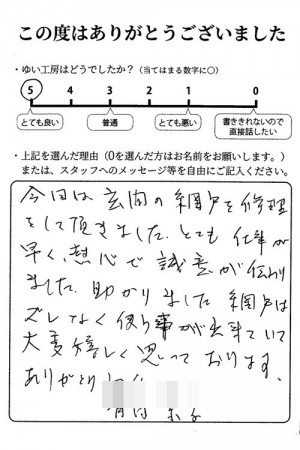 この度はありがとうございました
・ゆい工房はどうでしたか？(当てはまる数字に○)
5 4 3 2 1 0
とても良い 普通 とても悪い 書ききれないので直接話したい
・上記を選んだ理由（0を選んだ方はお名前をお願いします。）
または、スタッフへのメッセージ等を自由にご記入ください。
今回は玄関の網戸を修理
をして頂きました。とても仕事が
早く、熱心で誠意が伝わり
ました。助かりました 網戸は
ズレなく使う事が出来ていて
大変嬉しく思っております。
ありがとう